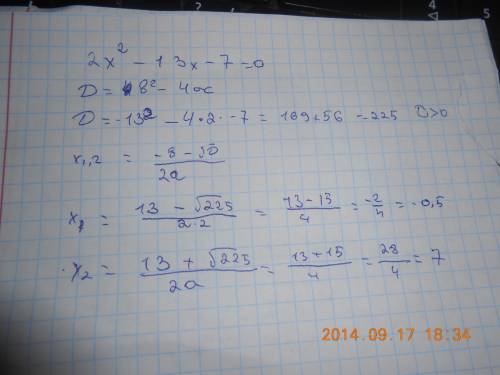 2x² - 13x - 7 = 0
D = 8² - 4ac
D = -13² - 4·2·-7 = 169+56 - 225 D>0
x₁,₂ = (-8 - √D)/2a
x₁ = (13 - √225)/(2·2) = (13-13)/4 = -2/4 = -0,5
x₂ = (13 + √225)/2a = (13+15)/4 = 28/4 = 7
2014.09.17 18:34